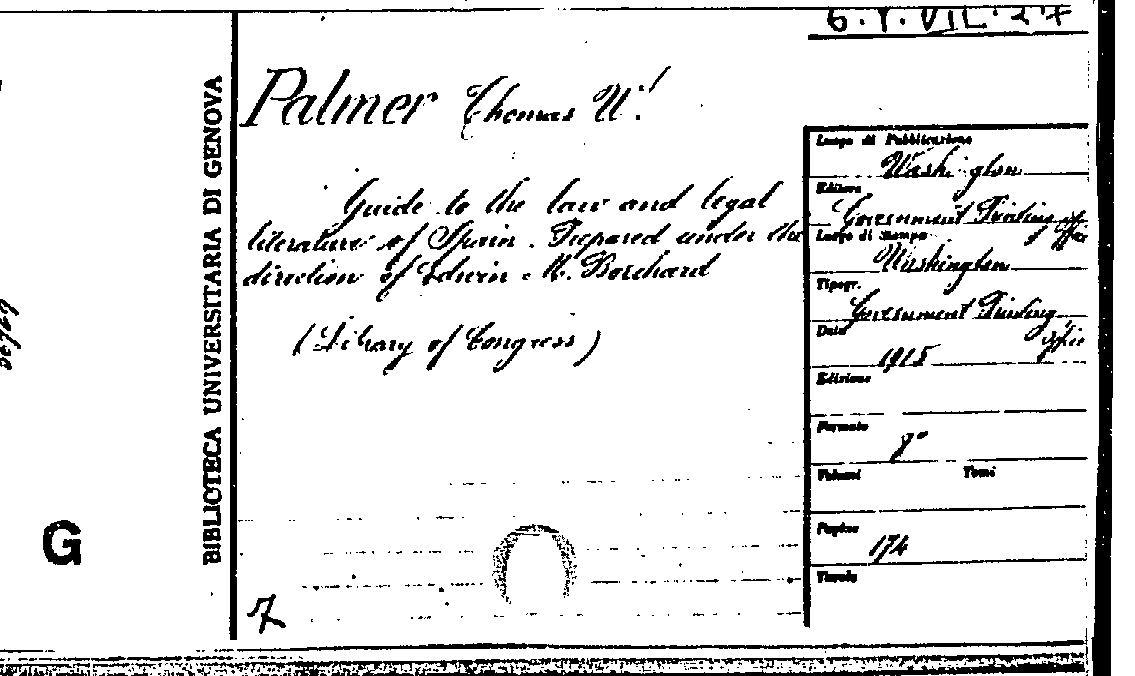 6.Y.VII.27
BIBLIOTECA UNIVERSITARIA DI GENOVA
G
Palmer Thomas W.
Guide to the law and legal
literature of Spain. Prepared under the
direction of Edwin M. Borchard
(Library of Congress)
7
Luogo di Pubblicazione
Washington
Editore
Government Printing Office
Luogo di Stampa
Washington
Tipogr.
Government Printing Office
Data
1915
Edizione
Formato
8°
Volumi Tomi
Pagine
174
Tavole